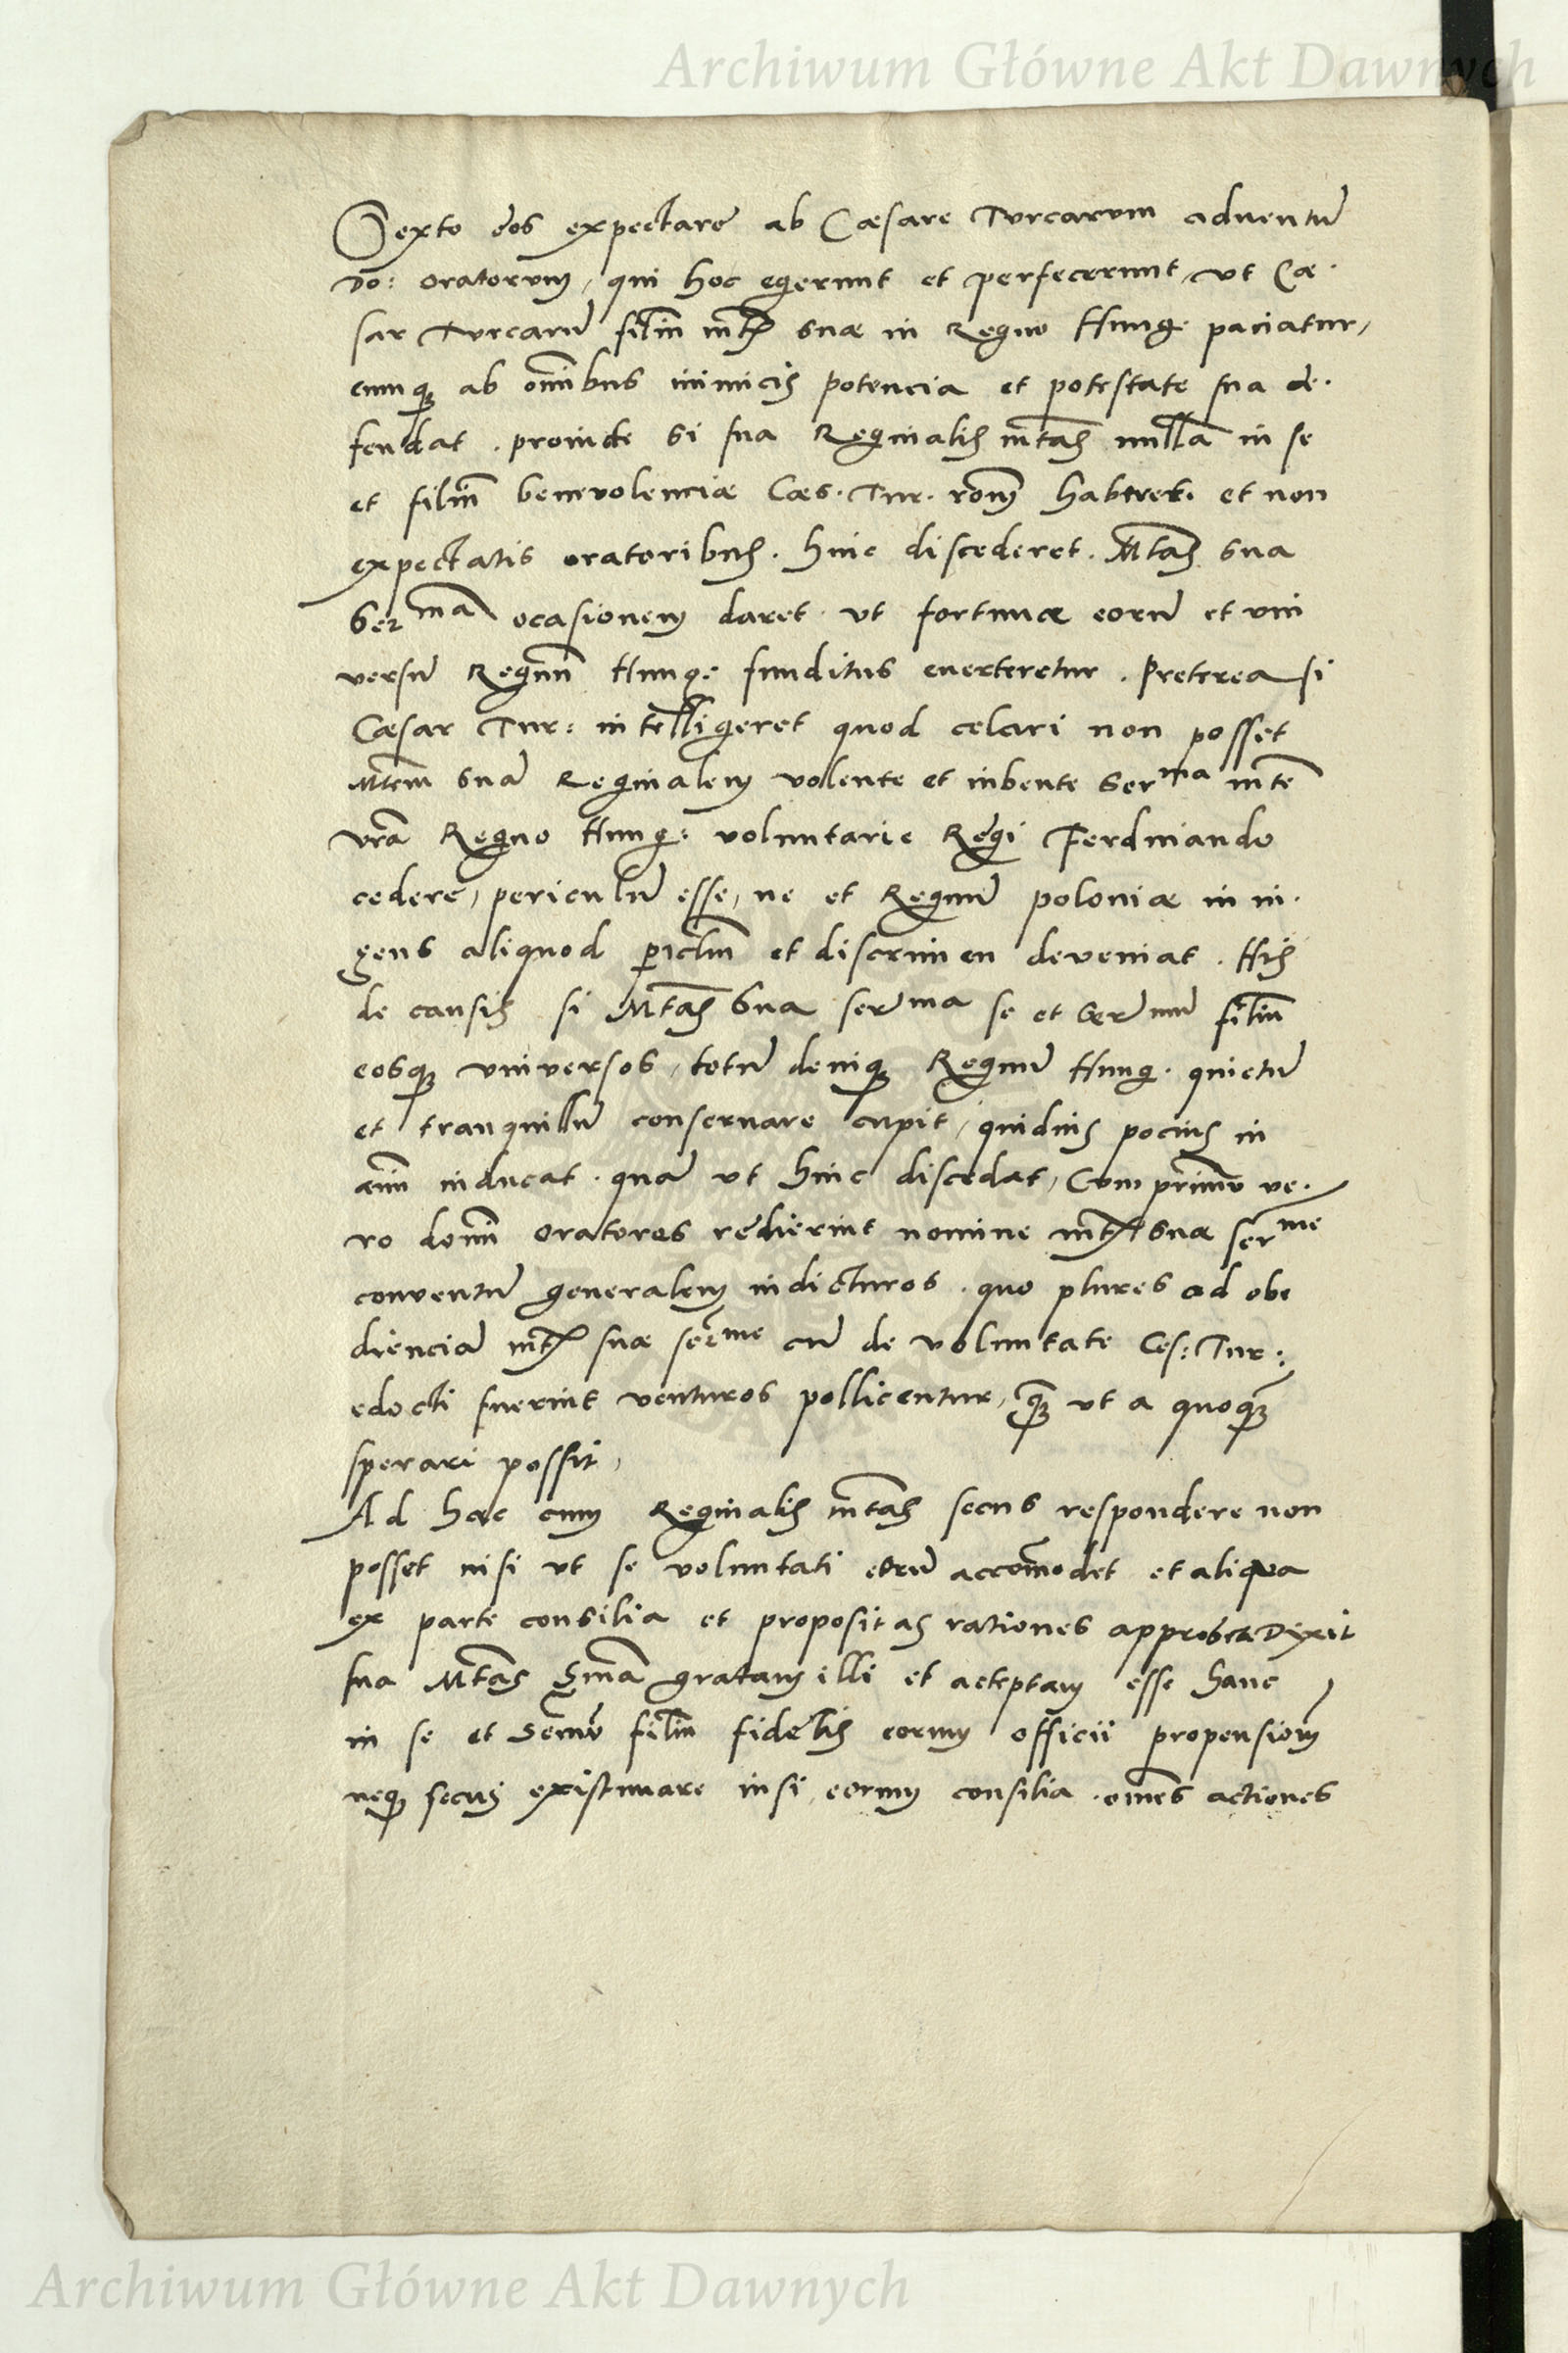 Archiwum Główne Akt Dawnych
Sexto eos expectare ab Cæsare Turcarum aduentū
do: oratorum, qui hoc egerunt et perfecerunt, ut Cæ-
sar Turcarū filiū mtis suæ in Regno Hung. paciatur,
eumq; ab omībus inimicis potencia et potestate sua de-
fendat. proinde si sua Reginalis mtas nullā in se
et filiū benevolenciæ Cæs. Tur. ronem haberet. et non
expectatis oratoribus. huic discederet. Mtas sua
Serma ocasionem daret. ut fortunæ eorū et uni
versū Regnū Hung. funditus euerteretur. Preterea si
Cæsar Tur: intelligeret quod celari non posset
Mtem suā Reginalem volente et iubente serma mte
vrā Regno Hung: voluntarie Regi Ferdinando
cedere, periculū esse, ne et Regnū poloniæ in in-
gens aliquod periclū et discrimen deveniat. His
de causis si Mtas Sua serma se et Sermū filiū
eosq; universos, totū deniq; Regnū Hung. quietū
et tranquillū conseruare cupit, quiduis pocius in
aīm inducat. quā ut hinc discedat, Cum primū ve-
ro domi oratores redierint nomine mtis suæ serme
conventū generalem indicturos. quo plures ad obe
dienciā mtis suæ serme cū de voluntate Ces: Tur:
edocti fuerint venturos pollicentur, quā ut a quoquā
sperari possit,
Ad hæc cum Reginalis mtas secus respondere non
posset nisi ut se voluntati eorū accomōdet et aliqua
ex parte consilia et propositas rationes approbet Dixit
sua Mtas Smā gratam illi et acceptam esse hanc
in se et Semū filiū fidelis eorum officii propensionē
neq; secus existimare nisi, eorum consilia. omēs actiones
Archiwum Główne Akt Dawnych